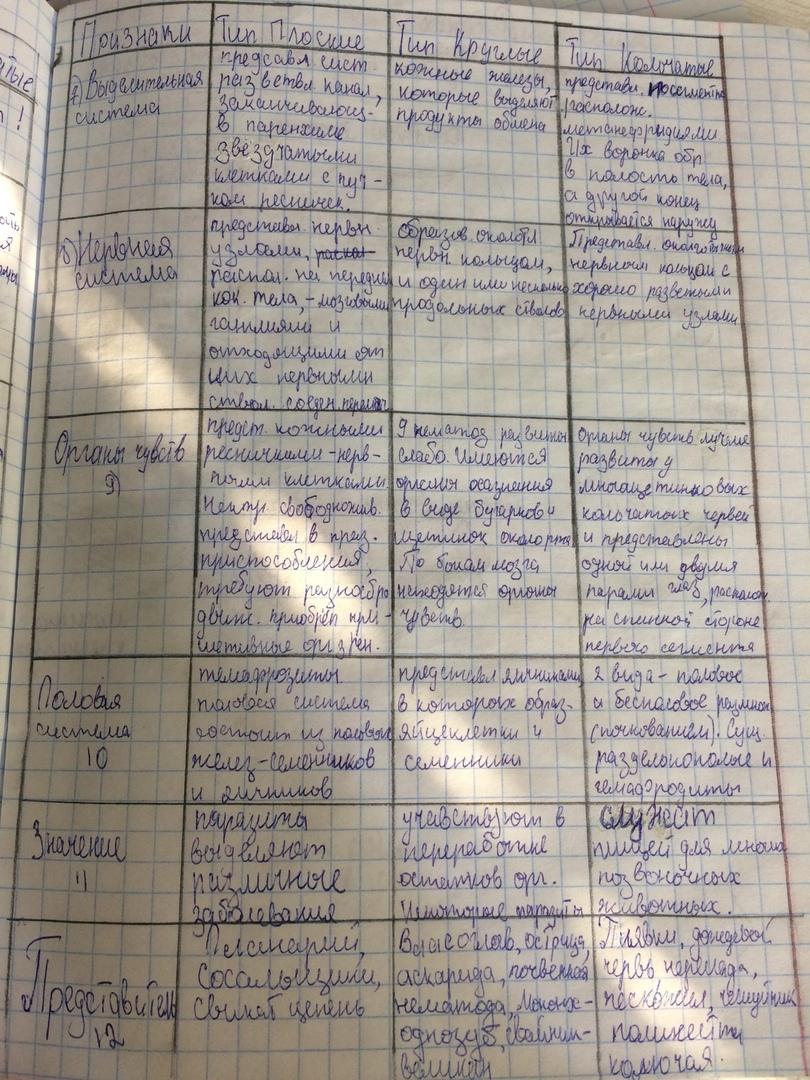 Признаки
Тип Плоские
Тип Круглые
Тип Кольчатые
7) Выделительная
система
представл сист.
разветвл канал,
заканчивающ-
в паренхиме
звездчатыми
клетками с пуч-
ком ресничек.
кожные железы,
которые выделяют
продукты обмена
представл. посегментно
располож.
метанефридиями
Их воронка обр
в полость тела,
а другой конец
открывается наружу
Нервная
система
представл нервн.
узлами,
распол. на переднем
кон. тела, - мозговыми
ганглиями и
отходящими от
них нервными
ствол. соедин.
образов окологл
нервн кольцом,
и один или несколько
продольных стволов
Представл. окологлоточным
нервным кольцом с
хорошо разветыми
нервными узлами
Органы чувств
9)
предст. кожными
ресничками - нерв-
ными клетками.
Некотр. свободножив.
представл в
приспособления,
требуют разнообр
движ. приобрёл при-
митивные орг зрен.
У нематод развиты
слабо. Имеются
органы осязания
в виде бугарков и
щетинок около рта
По бокам мозга
находятся органы
чувств.
Органы чувств лучше
развиты у
многощетинковых
кольчатых червей
и представлены
одной или двумя
парами глаз, располож.
на спинной стороне
первого сегмента
Половая
система
10
гемафрозиты.
половая система
состоит из половых
желез-семенников
и яичников
представл яичниками,
в которых образ-
яйцеклетки и
семенники
2 вида - половое
и бесполовое размнож
(почкованием). Сущ.
раздельнополые и
гемафродиты
Значение
11
паразиты
выделяют
различные
заболевания
учавствуют в
переработке
остатков орг.
Некоторые паразиты
служат
пищей для многих
позвоночных
животных.
Представитель
12
Планарий,
Сосальщики,
свиной цепень
Власоглав, острица,
аскарида, почвенная
нематода, мононх-
однозуб,
великан
Пиявки, дождевой
червь нереида,
пескожил,
полинейта
колючая.